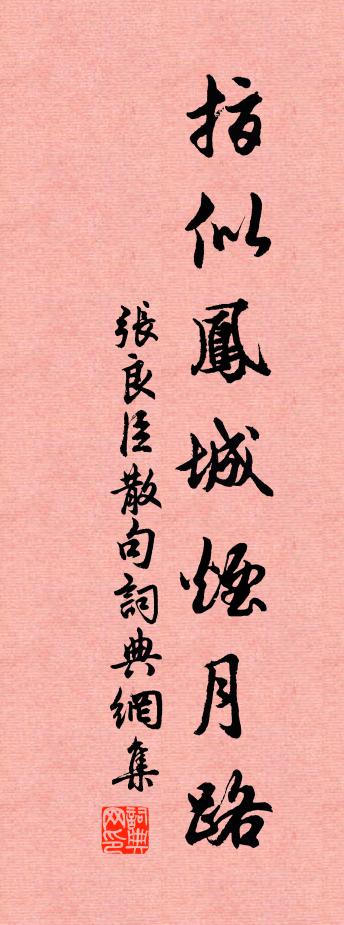 指似鳳城煙月路
張良臣散句詞典網集
詞典网印